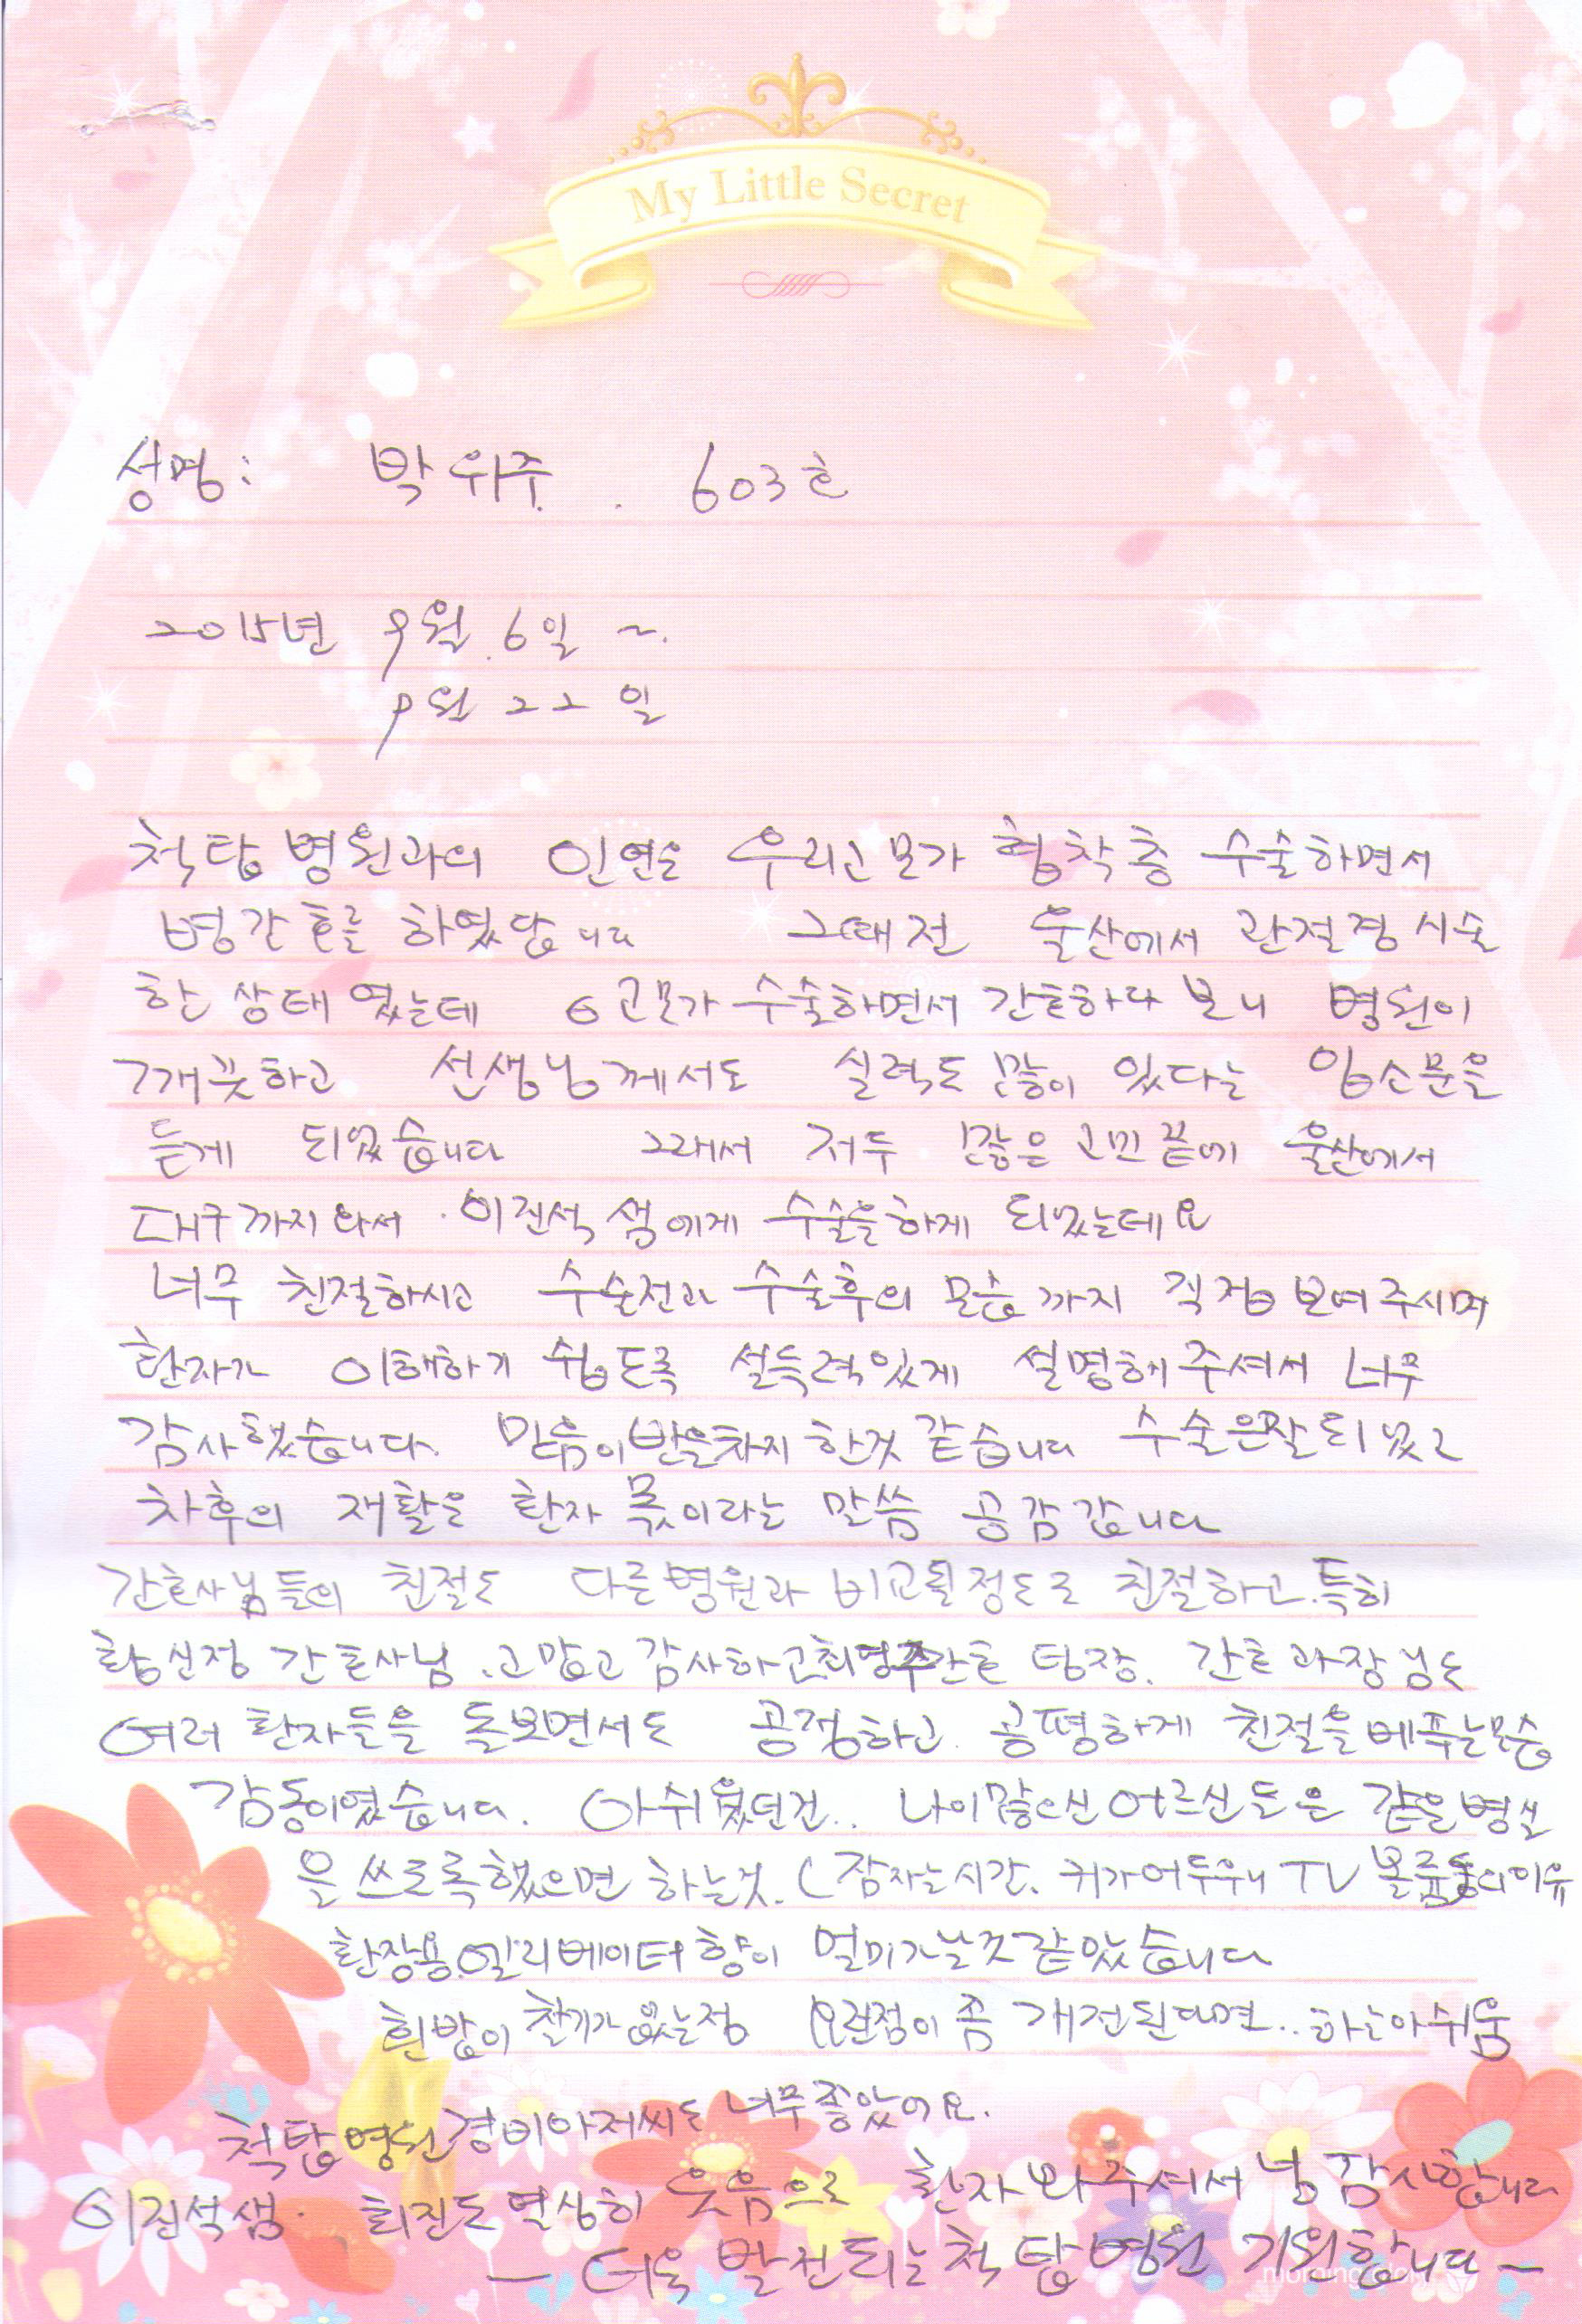 My Little Secret
성명: 박위주. 603호
2015년 9월. 6일 ~.
9월 22일
척탑병원과의 인연은 우리고모가 협착증 수술하면서
병간호를 하였답니다 그때전 울산에서 관절경시술
한 상태였는데 고모가 수술하면서 간호하다 보니 병원이
깨끗하고 선생님께서도 실력도 많이 있다는 입소문을
듣게 되었습니다 그래서 저두 많은 고민끝에 울산에서
대구까지와서. 이진석 샘에게 수술을하게 되었는데요
너무 친절하시고 수술전과 수술후의 모습까지 직접보여주시며
환자가 이해하기 쉽도록 설득력있게 설명해주셔서 너무
감사했습니다. 믿음이반을차지한것 같습니다 수술은잘되었고
차후의 재활은 환자 몫이라는 말씀 공감갑니다
간호사님들의 친절도 다른병원과 비교될정도로 친절하고.특히
황신정 간호사님.고맙고 감사하고최영주간호 팀장. 간호과장님도
여러 환자들을 돌보면서도 공정하고. 공평하게 친절을베푸는모습
감동이였습니다. 아쉬웠던건.. 나이많으신어르신들은 같은병실
을 쓰로록했으면 하는것.(잠자는시간. 귀가어두우니 TV 볼륨
환장용.엘리베이터향이 멀미가날것같았습니다
흰밥이 찰기가없는점 요런점이 좀 개선된다면..하는아쉬움
척탑병원경비아저씨도 너무좋았어요.
이진석샘. 회진도열심히 웃음으로 환자봐주셔서 넘감사합니다
— 더욱 발전되는척탑병원 기원합니다 —
morning